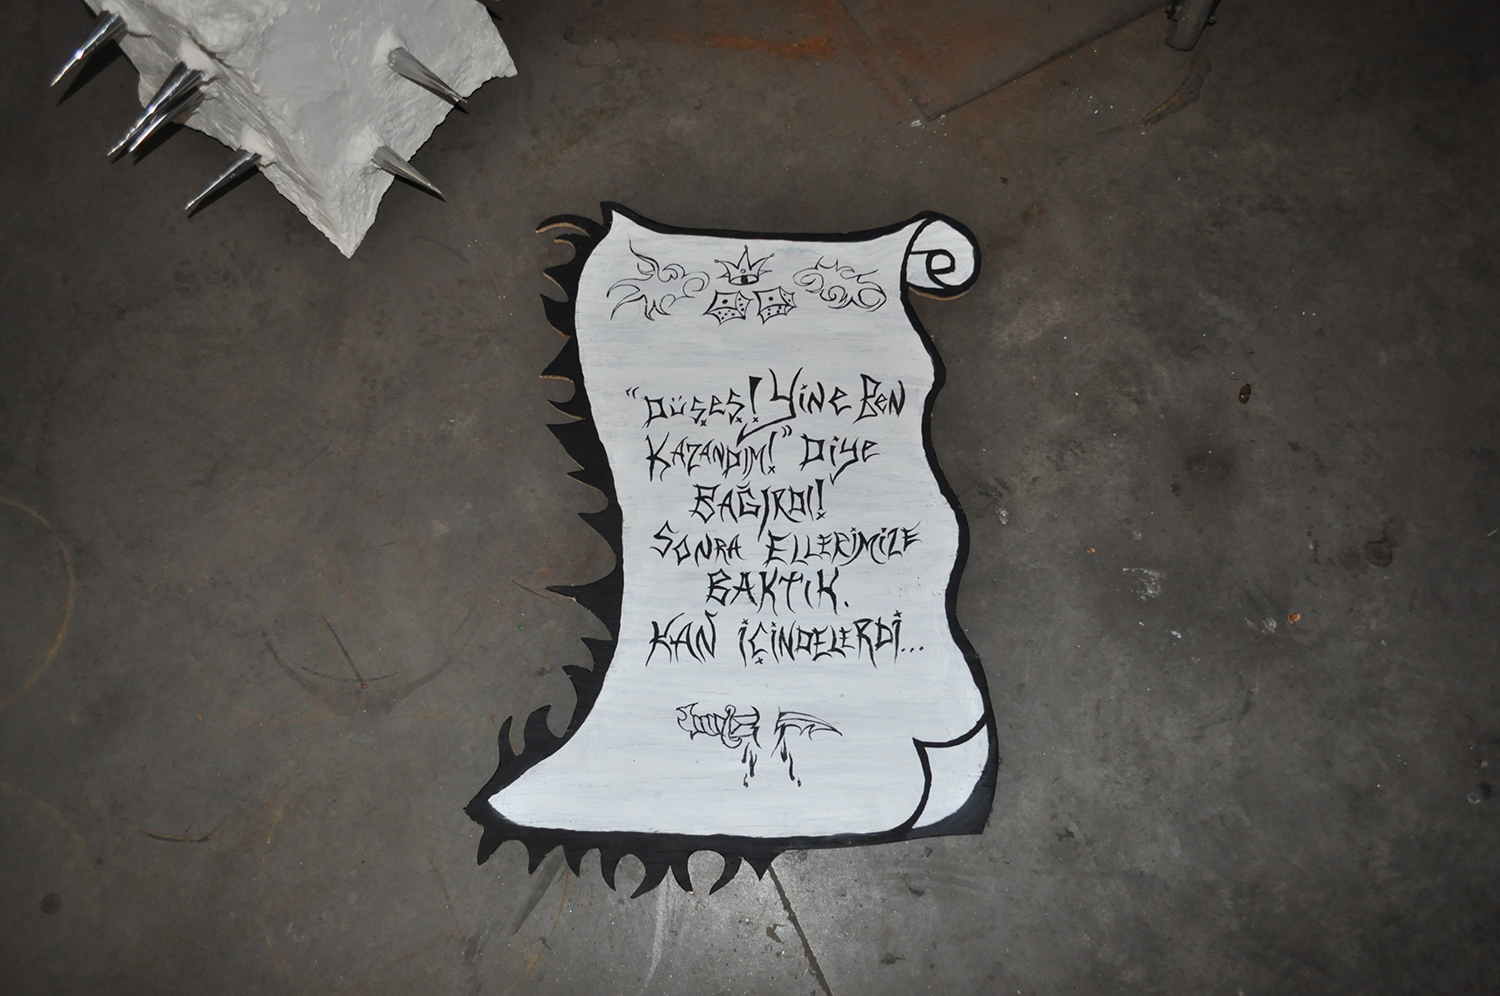 "DÜŞEŞ! YİNE BEN
KAZANDIM!" DİYE
BAĞIRDI!
SONRA ELLERİMİZE
BAKTIK.
KAN İÇİNDELERDİ...